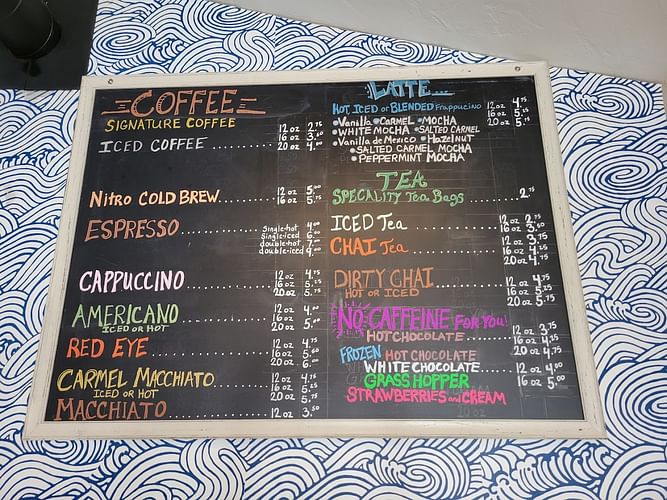 COFFEE
SIGNATURE COFFEE
ICED COFFEE
12 oz 2.75
16 oz 3.50
20 oz 4.00
Nitro COLD BREW
12 oz 5.00
16 oz 5.75
ESPRESSO
Single-hot 4.00
Single-iced 6.00
double-hot 7.00
double-iced 9.00
CAPPUCCINO
12 oz 4.75
16 oz 5.25
20 oz 5.75
AMERICANO
ICED OR HOT
12 oz 4.00
16 oz
20 oz 5.00
RED EYE
12 oz 4.75
16 oz 5.50
20 oz 6.00
CARMEL MACCHIATO
ICED OR HOT
12 oz 4.75
16 oz 5.25
20 oz 5.75
MACCHIATO
12 oz 3.50
LATTE
HOT ICED or BLENDED Frappucino
12 oz 4.75
16 oz 5.25
20 oz 5.75
•Vanilla •CARMEL •MOCHA
•WHITE MOCHA •SALTED CARMEL
•Vanilla de Mexico •Hazelnut
•SALTED CARMEL MOCHA
•PEPPERMINT MOCHA
TEA
SPECALITY Tea Bags 2.75
ICED Tea
12 oz 2.75
16 oz
20 oz
CHAI Tea
12 oz
16 oz
20 oz 4.75
DIRTY CHAI
HOT OR ICED
12 oz 4.75
16 oz 5.25
20 oz 5.75
NO CAFFEINE FOR YOU!
HOT CHOCOLATE
12 oz 3.75
16 oz 4.25
20 oz 4.75
FROZEN HOT CHOCOLATE
WHITE CHOCOLATE
12 oz 4.00
16 oz 5.00
GRASS HOPPER
STRAWBERRIES and CREAM